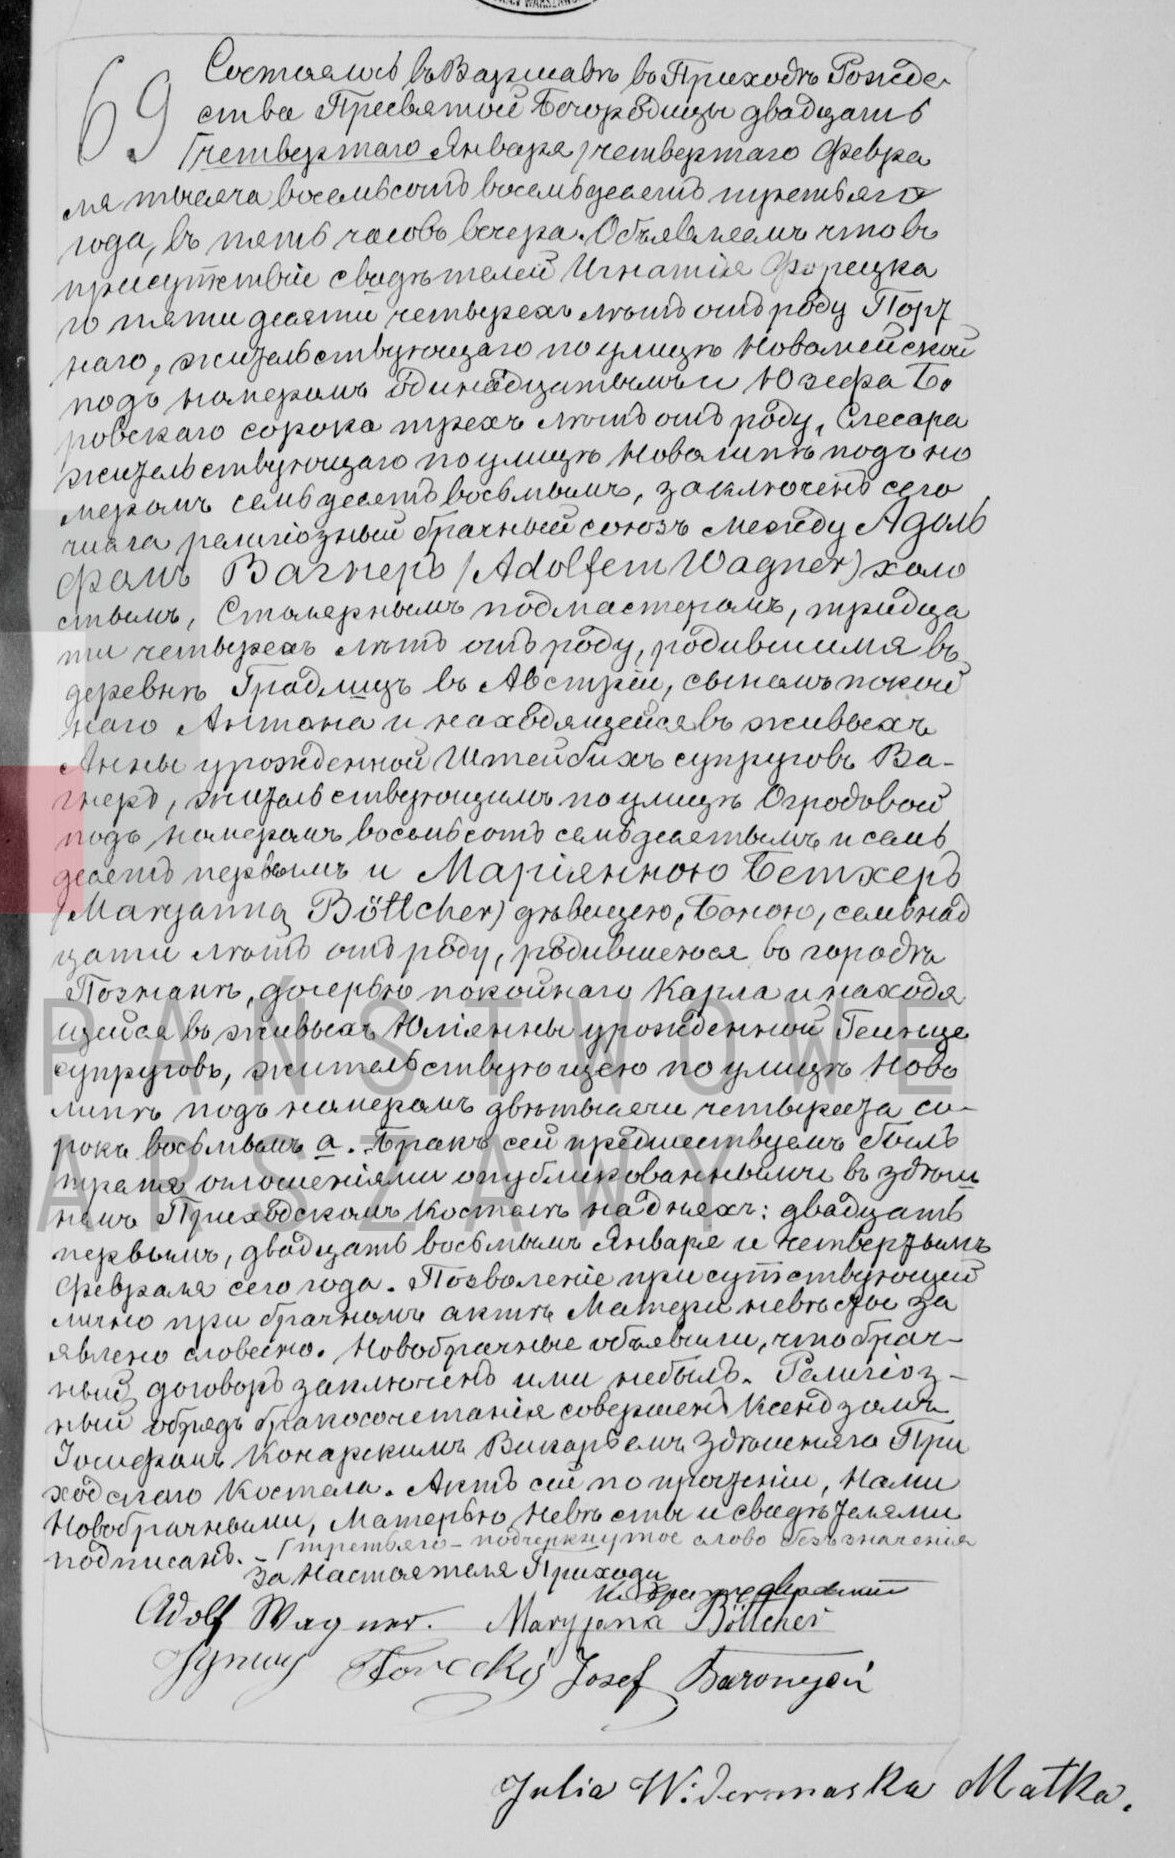 69
Состоялось въ Варшавѣ въ Приходѣ Рожде-
ства Пресвятой Богородицы двадцать
четвертаго Января / четвертаго Февра
ля тысяча восемьсотъ восемьдесятъ третьяго
года, въ пять часовъ вечера. Объявляемъ что въ
присутствіи свидѣтелей Игнатія Форецка
го пятидесяти четырехъ лѣтъ отъ роду Порт
наго, жительствующаго по улицѣ Новомейской
подъ номеромъ одинадцатымъ и Юзефа Бо
ровскаго сорока трехъ лѣтъ отъ роду, Слесара
жительствующаго по улицѣ Новолипкѣ подъ но
меромъ семьдесятъ восьмымъ, заключенъ сего
числа религіозный брачный союзъ между Адоль
фомъ Вагнеръ (Adolfem Wagner) холо
стымъ, Столярнымъ подмастеромъ, тридца
ти четырехъ лѣтъ отъ роду, родившимся въ
деревнѣ Градлицъ въ Австріи, сыномъ покой
наго Антона и находящейся въ живыхъ
Анны урожденной Штейбихъ супруговъ Ва-
гнеръ, жительствующимъ по улицѣ Огродовой
подъ номеромъ восемьсотъ семьдесятымъ и семь
десятъ первымъ и Маріянною Бетхеръ
(Maryanną Böttcher) дѣвицею, Боною, семьнад
цати лѣтъ отъ роду, родившеюся въ городѣ
Познанѣ, дочерью покойнаго Карла и находя
щейся въ живыхъ Юліянны урожденной Геинце
супруговъ, жительствующею по улицѣ Ново
липкѣ подъ номеромъ двѣтысячи четыреста со-
рокъ восьмымъ а. Бракъ сей предшествуемъ былъ
тремя оглошеніями опубликованными въ здѣш
немъ Приходскомъ Костелѣ на дняхъ: двадцать
первымъ, двадцать восьмымъ Января и четвертымъ
Февраля сего года. Позволеніе присутствующей
лично при брачномъ актѣ Матери невѣсты за
явлено словесно. Новобрачные объявили, что брач-
ный договоръ заключенъ ими небылъ. Религіоз-
ный обрядъ бракосочетанія совершенъ Ксендзомъ
Іосифомъ Конарскимъ Викаріемъ здѣшняго При
ходскаго Костела. Актъ сей по прочтеніи, Нами
Новобрачными, Матерью Невѣсты и свидѣтелями
подписанъ. - третьяго - подчеркнутое слово безъ значенія
За Настоятеля Прихода
Adolf Wagner. Maryjana Böttcher
Ignacy Forecki Josef
Julia Matka.
PAŃSTWOWE
ARSZAWY